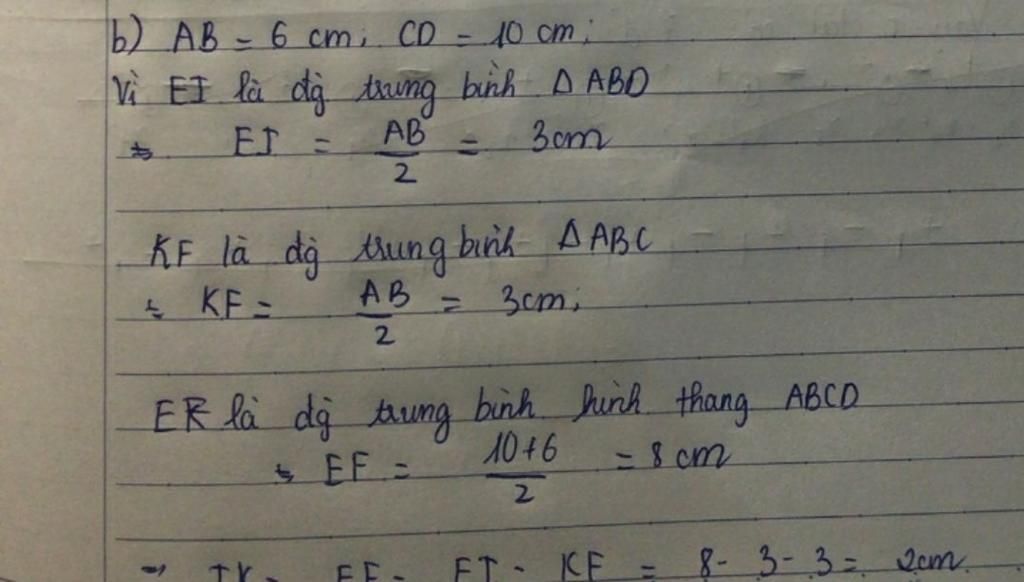 b) AB = 6 cm; CD = 10 cm;
Vì EI là đg trung bình Δ ABD
⇒ EI = AB/2 = 3cm
KF là đg trung bình Δ ABC
⇒ KF = AB/2 = 3cm;
EF là đg trung bình hình thang ABCD
⇒ EF = 10+6/2 = 8 cm
⇒ IK = EF - EI - KF = 8 - 3 - 3 = 2cm.